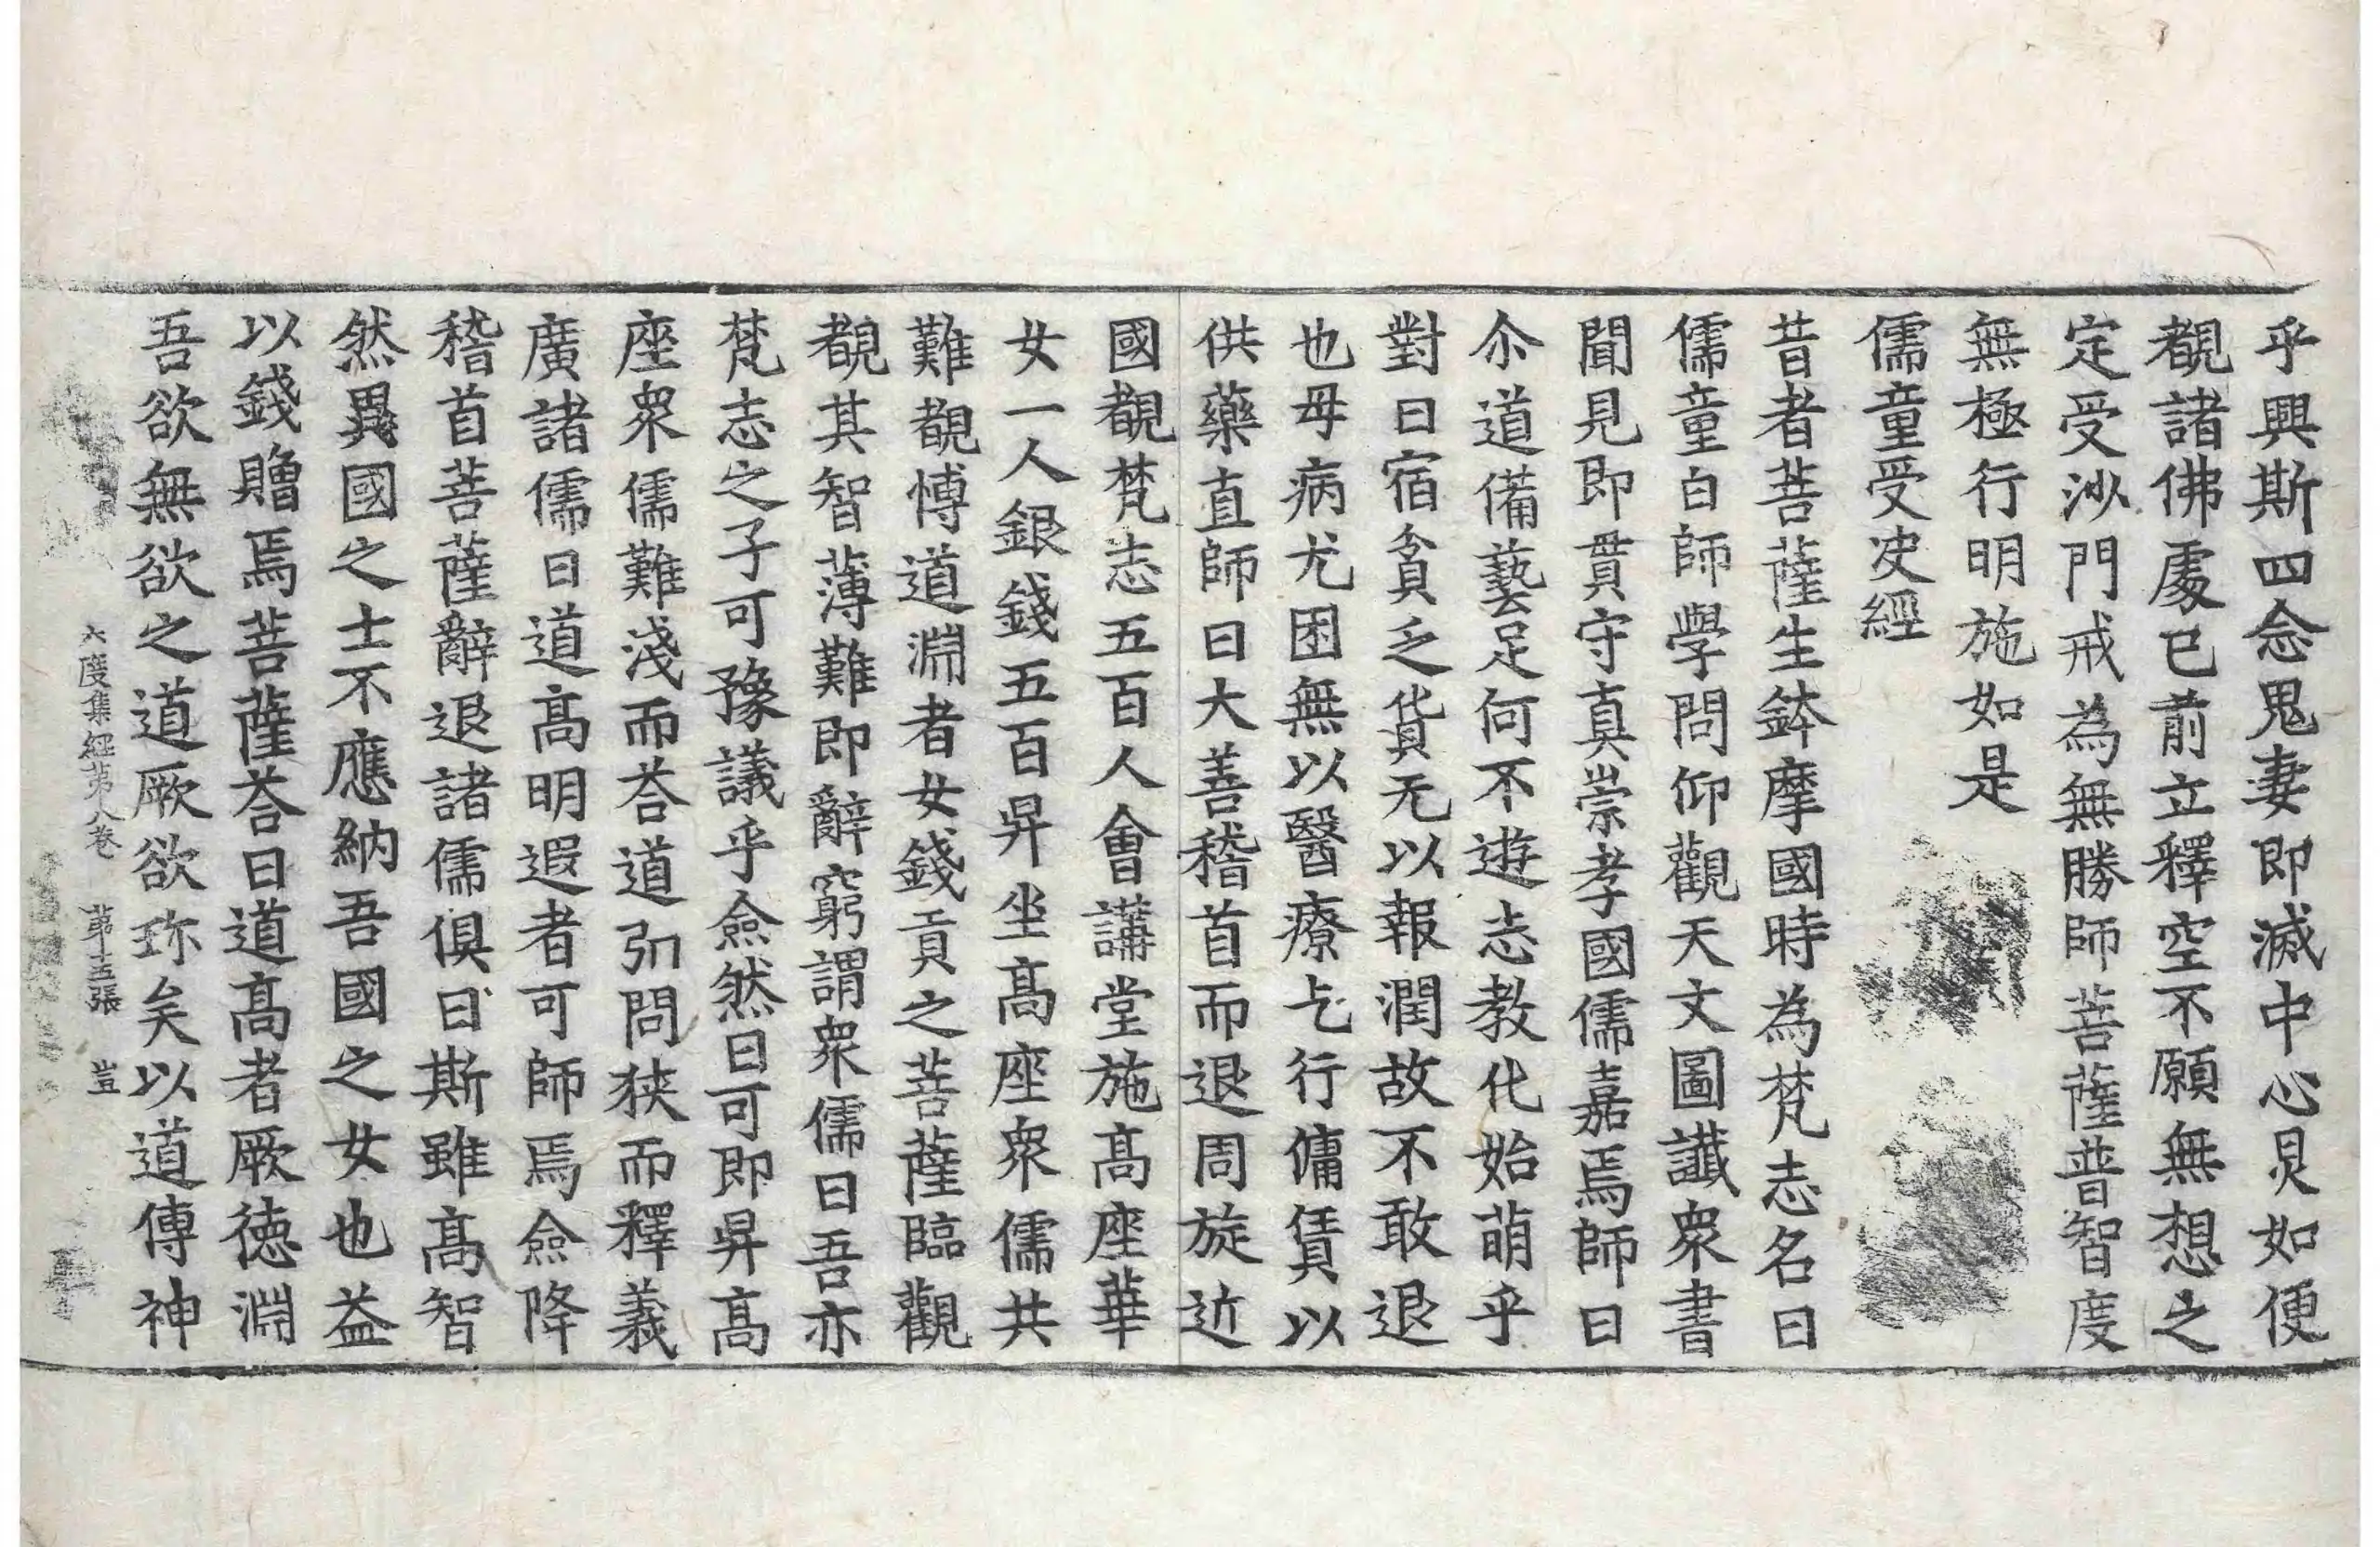 乎興斯四念鬼妻即滅中心炅如便
覩諸佛處已前立釋空不願無想之
定受沙門戒為無勝師菩薩普智度
無極行明施如是
儒童受决經
昔者菩薩生鉢摩國時為梵志名曰
儒童白師學問仰觀天文圖讖衆書
聞見即貫守真崇孝國儒嘉焉師曰
尒道備藝足何不遊志教化始萌乎
對曰宿貧乏貨无以報潤故不敢退
也母病尤困無以醫療乞行傭賃以
供藥直師曰大善稽首而退周旋近
國覩梵志五百人會講堂施高座華
女一人銀錢五百昇坐高座衆儒共
難覩愽道淵者女錢貢之菩薩臨觀
覩其智薄難即辭窮謂衆儒曰吾亦
梵志之子可豫議乎僉然曰可即昇高
座衆儒難淺而荅道弘問狹而釋義
廣諸儒曰道高明遐者可師焉僉降
稽首菩薩辭退諸儒俱曰斯雖高智
然異國之士不應納吾國之女也益
以錢贈焉菩薩荅曰道高者厥徳淵
吾欲無欲之道厥欲珎矣以道傳神
六度集經第八卷 第十五張 豈